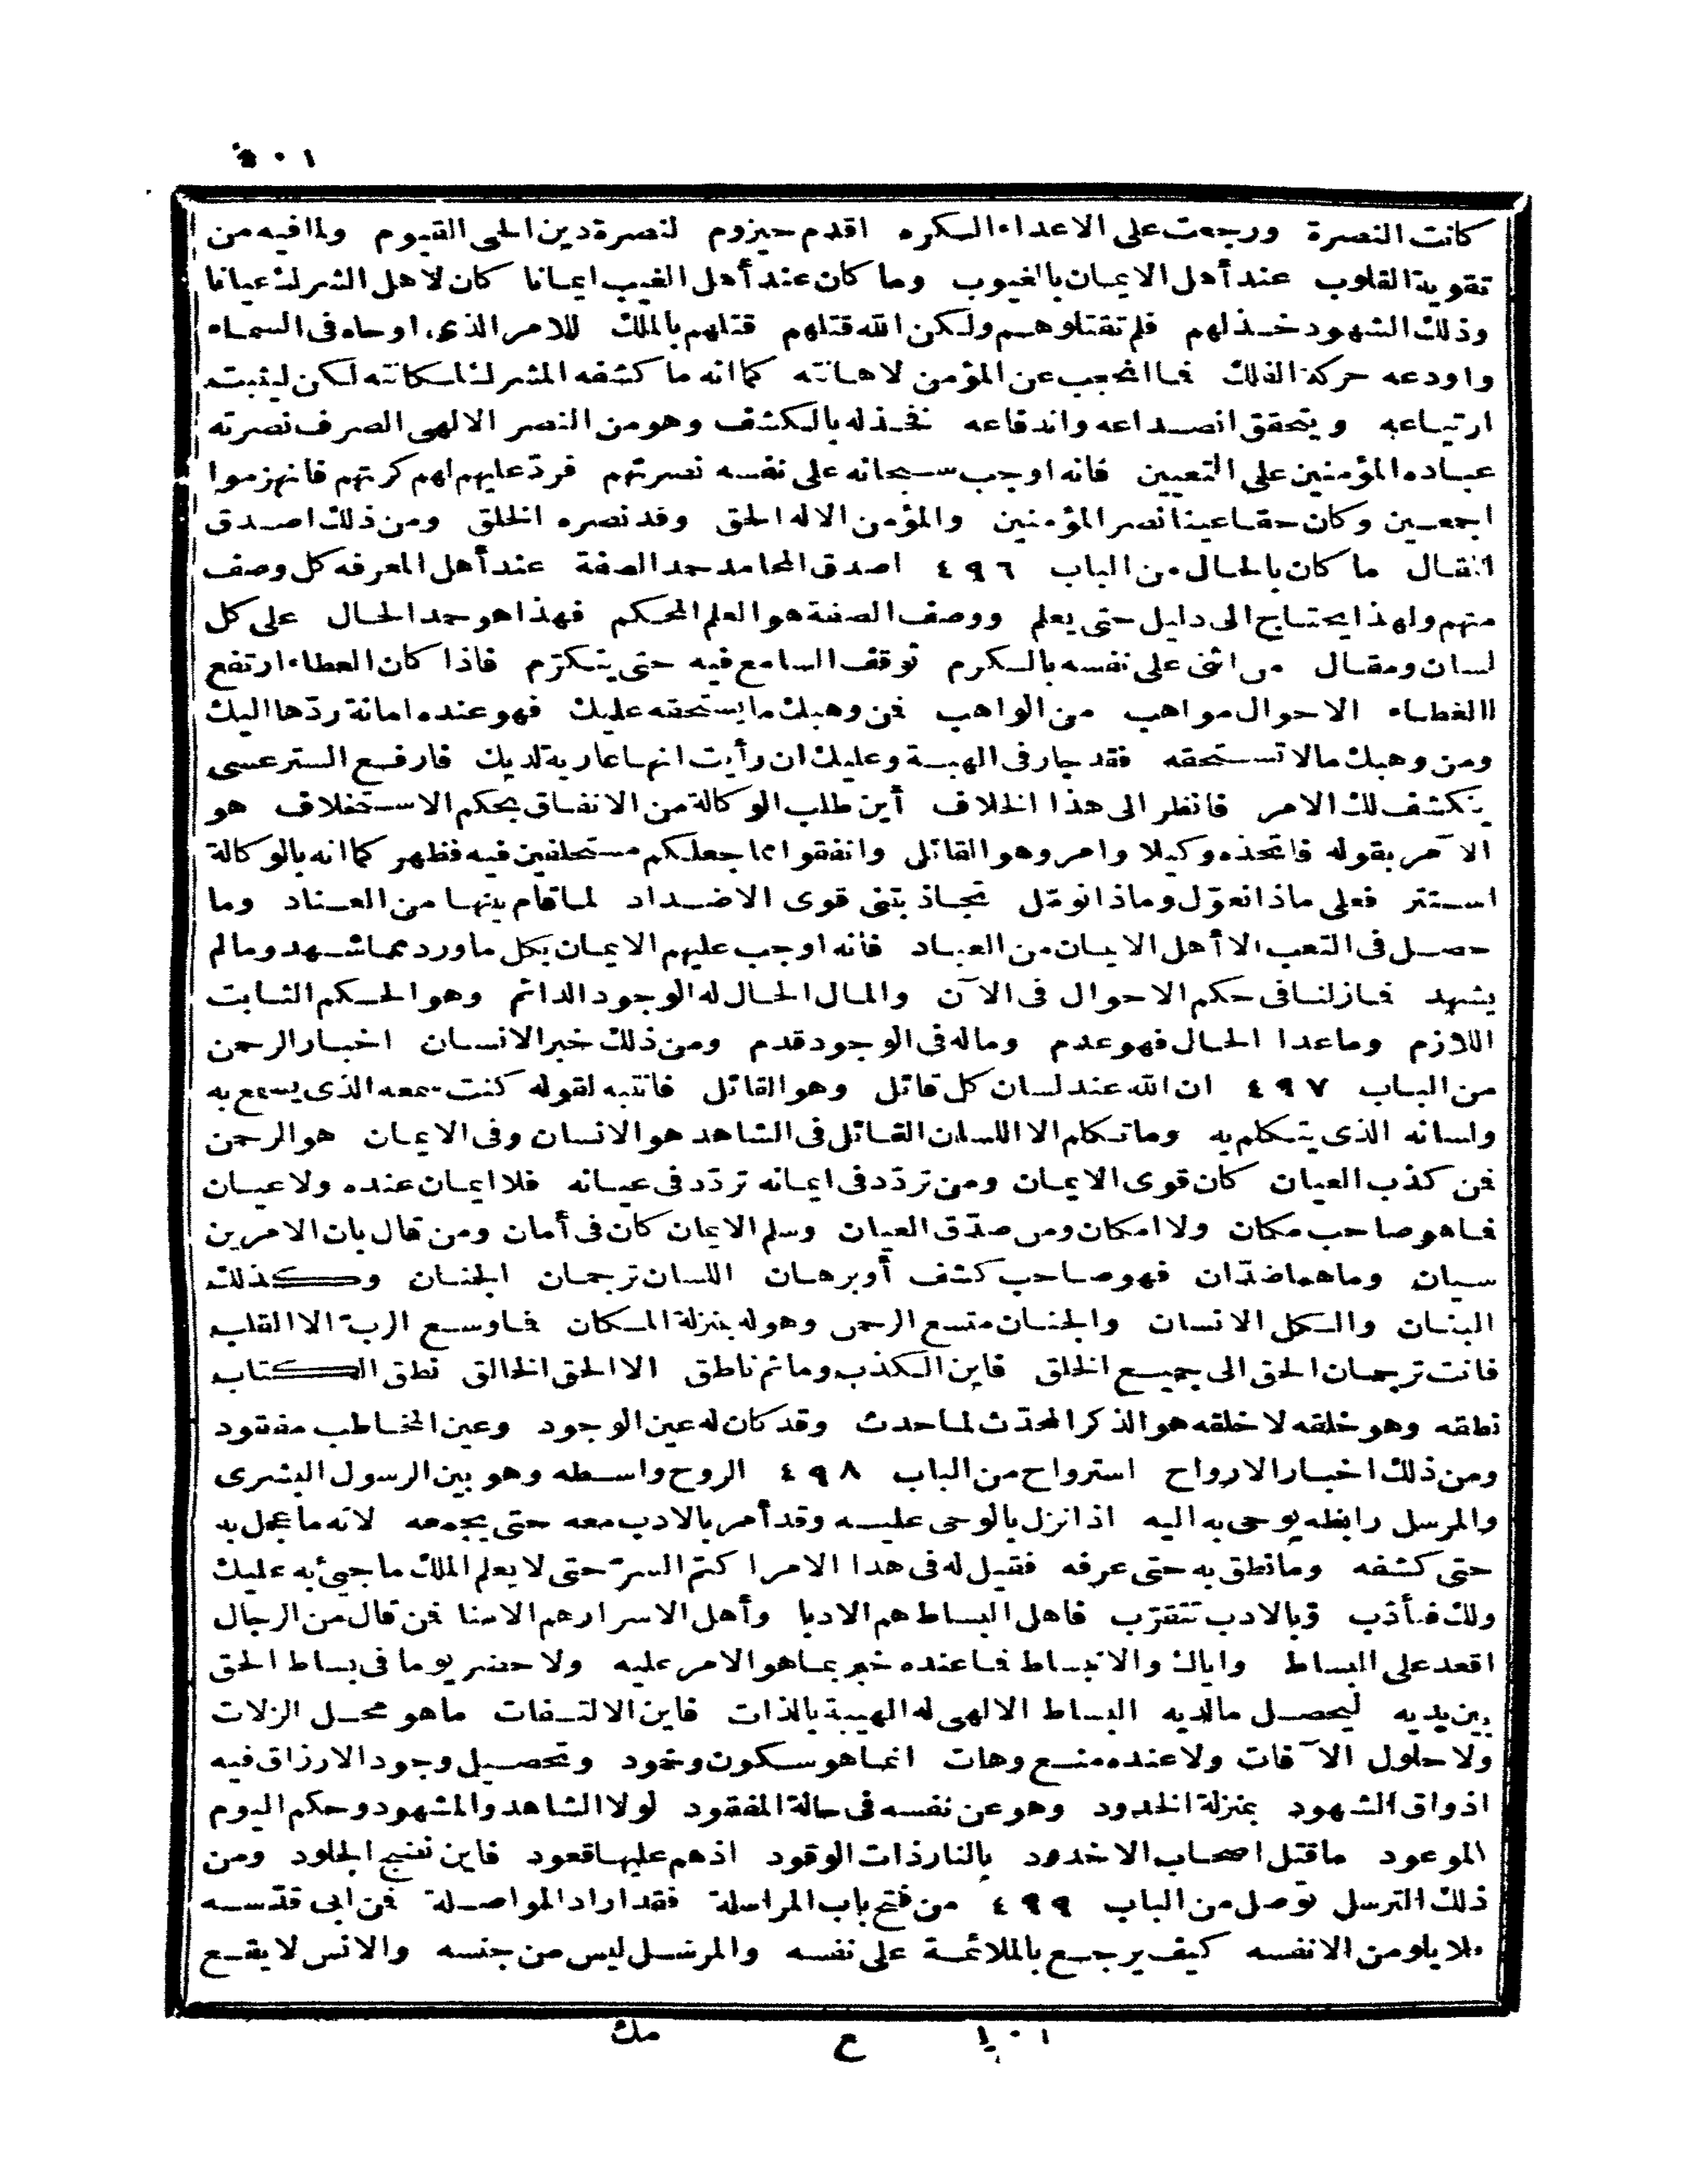 ٥٠١
كانت النصرة ورجعت على الاعداء الكره اقدم حيزوم لنصرة دين الحى القيوم ولما فيه من
تقوية القلوب عند أهل الايمان بالغيوب وما كان عند أهل الغيب ايمانا كان لاهل الشرك عيانا
وذلك الشهود خذلهم فلم تقتلوهم ولكن الله قتلهم قتلهم بالملك للامر الذى اوحاه فى السماء
واودعه حركة الفلك فما انحجب عن المؤمن لاهانته كما انه ما كشفه المشرك لمكانته لكن ليثبت
ارتياعه ويتحقق انصداعه واندفاعه فخذله بالكشف وهو من النصر الالهى الصرف نصرته
عباده المؤمنين على التعيين فانه اوجب سبحانه على نفسه نصرتهم فردّ عليهم لهم كرتهم فانهزموا
اجمعين وكان حقا علينا نصر المؤمنين والمؤمن الاله الحق وقد نصره الخلق ومن ذلك اصدق
المقال ما كان بالحال من الباب ٤٩٦ اصدق المحامد حمد الصفة عند أهل المعرفه كل وصف
منهم ولهذا يحتاج الى دليل حتى يعلم ووصف الصفة هو العلم المحكم فهذا هو حمد الحال على كل
لسان ومقال من اثنى على نفسه بالكرم توقف السامع فيه حتى يتكرّم فاذا كان العطاء ارتفع
الغطاء الاحوال مواهب من الواهب فمن وهبك ما يستحقه عليك فهو عنده امانة ردّها اليك
ومن وهبك مالا تستحقه فقد جار فى الهبة وعليك ان رأيت انها عارية لديك فارفع الستر عسى
ينكشف لك الامر فانظر الى هذا الخلاف أين طلب الوكالة من الانفاق بحكم الاستخلاف هو
الآمر بقوله فاتخذه وكيلا وامر وهو القائل وانفقوا مما جعلكم مستخلفين فيه فظهر كما انه بالوكالة
استتر فعلى ماذا نعوّل وماذا نوٴمّل تجاذبتنى قوى الاضداد لما قام بينها من العناد وما
حصل فى التعب الا أهل الايمان من العباد فانه اوجب عليهم الايمان بكل ما ورد مما شهد وما لم
يشهد فمازلنا فى حكم الاحوال فى الآن والمال الحال له الوجود الدائم وهو الحكم الثابت
اللازم وما عدا الحال فهو عدم وماله فى الوجود قدم ومن ذلك خبر الانسان اخبار الرحمن
من الباب ٤٩٧ ان الله عند لسان كل قائل وهو القائل فانتبه لقوله كنت سمعه الذى يسمع به
ولسانه الذى يتكلم به وما تكلم الا اللسان القائل فى الشاهد هو الانسان وفى الايمان هو الرحمن
فمن كذب العيان كان قوى الايمان ومن تردّد فى ايمانه تردّد فى عيانه فلا ايمان عنده ولا عيان
فما هو صاحب مكان ولا امكان ومن صدّق العيان وسلم الايمان كان فى أمان ومن قال بان الامرين
سيان وما هما ضدّان فهو صاحب كشف أو برهان اللسان ترجمان الجنان وكذلك
البنان والكل الانسان والجنان متسع الرحمن وهو له بمنزلة المكان فما وسع الربّ الا القلب
فانت ترجمان الحق الى جميع الخلق فاين الكذب وما ثم ناطق الا الحق الخالق نطق الكتاب
نطقه وهو خلقه لا خلقه هو الذكر المحدّث لما حدث وقد كان له عين الوجود وعين المخاطب مفقود
ومن ذلك اخبار الارواح استرواح من الباب ٤٩٨ الروح واسطه وهو بين الرسول البشرى
والمرسل رابطه يوحى به اليه اذا نزل بالوحى عليه وقد أمر بالادب معه حتى يجمعه لانه ما عجل به
حتى كشفه وما نطق به حتى عرفه فقيل له فى هذا الامر اكتم السرّ حتى لا يعلم الملك ما جئ به عليك
ولك فتأدّب وبالادب تتقرّب فاهل البساط هم الادبا وأهل الاسرار هم الامنا فمن قال من الرجال
اقعد على البساط واياك والانبساط فما عنده خبر بما هو الامر عليه ولا حضر يوما فى بساط الحق
بين يديه ليحصل مالديه البساط الالهى له الهيبة بالذات فاين الالتفات ما هو محل الزلات
ولا حلول الآفات ولا عنده منع وهات انما هو سكون وخمود وتحصيل وجود الارزاق فيه
اذواق الشهود بمنزلة الخدود وهو عن نفسه فى حالة المفقود لولا الشاهد والمشهود وحكم اليوم
الموعود ما قتل اصحاب الاخدود بالنار ذات الوقود اذهم عليها قعود فاين نضج الجلود ومن
ذلك الترسل توصل من الباب ٤٩٩ من فتح باب المراسلة فقد اراد المواصلة فمن ابى قدّسه
فلا يلومن الا نفسه كيف يرجع بالملائمة على نفسه والمرسل ليس من جنسه والانس لا يقع
ع مك